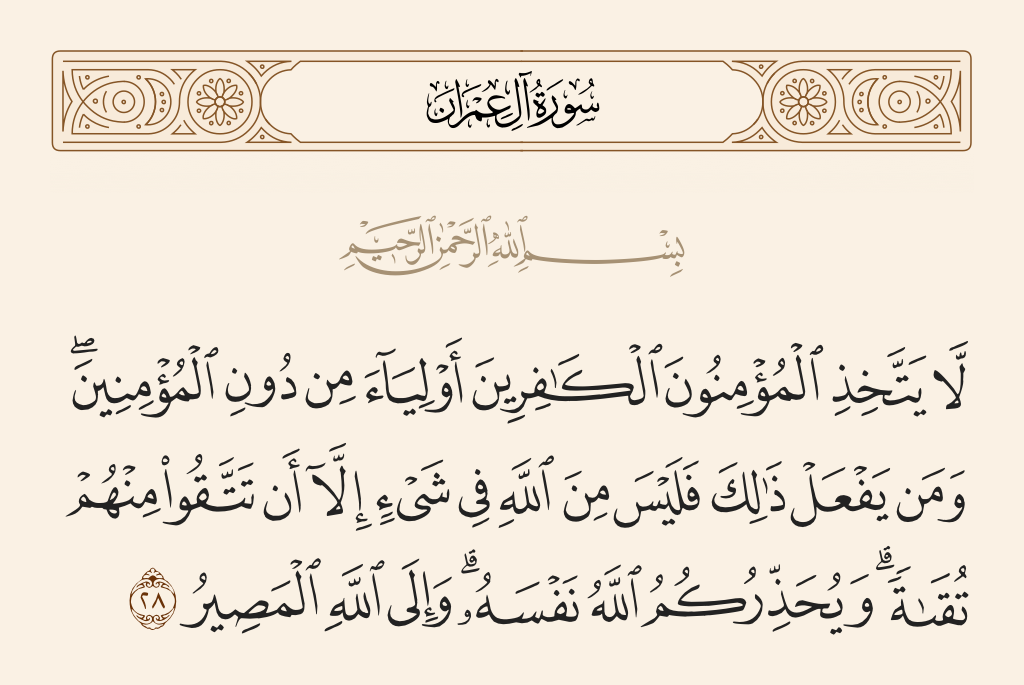 سُورَةُ آلِ عِمْرَانَ
بِسْمِ ٱللَّهِ ٱلرَّحْمَٰنِ ٱلرَّحِيمِ
لَّا يَتَّخِذِ ٱلْمُؤْمِنُونَ ٱلْكَٰفِرِينَ أَوْلِيَآءَ مِن دُونِ ٱلْمُؤْمِنِينَۖ
وَمَن يَفْعَلْ ذَٰلِكَ فَلَيْسَ مِنَ ٱللَّهِ فِى شَىْءٍ إِلَّآ أَن تَتَّقُوا۟ مِنْهُمْ
تُقَىٰةًۗ وَيُحَذِّرُكُمُ ٱللَّهُ نَفْسَهُۥۗ وَإِلَى ٱللَّهِ ٱلْمَصِيرُ ٢٨